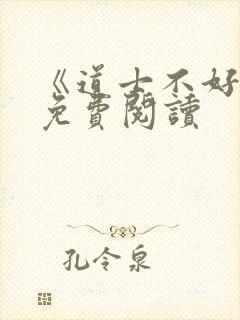 《道士不好
免費閱讀
孔令泉